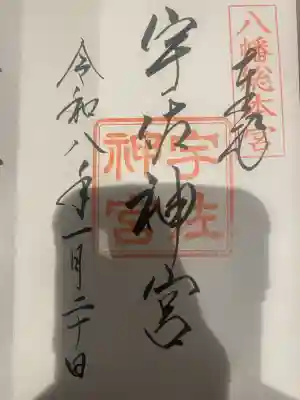 八幡総本宮
奉拝
宇佐神宮
宇佐
神宮
令和八年一月二十日